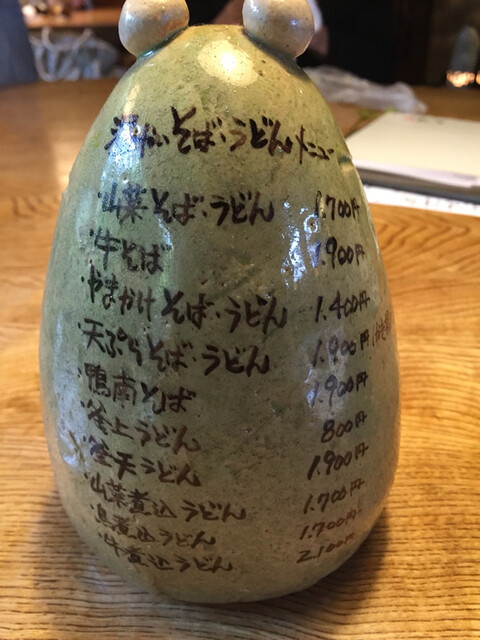 温かいそば・うどんメニュー
・山菜そば・うどん 1.700円
・牛そば 1.900円
・やまかけそば・うどん 1.400円
・天ぷらそば・うどん 1.900円
・鴨南そば 1.900円
・釜上うどん 800円
・釜天うどん 1.900円
・山菜煮込うどん 1.700円
・鳥煮込うどん 1.700円
・牛煮込うどん 2.100円